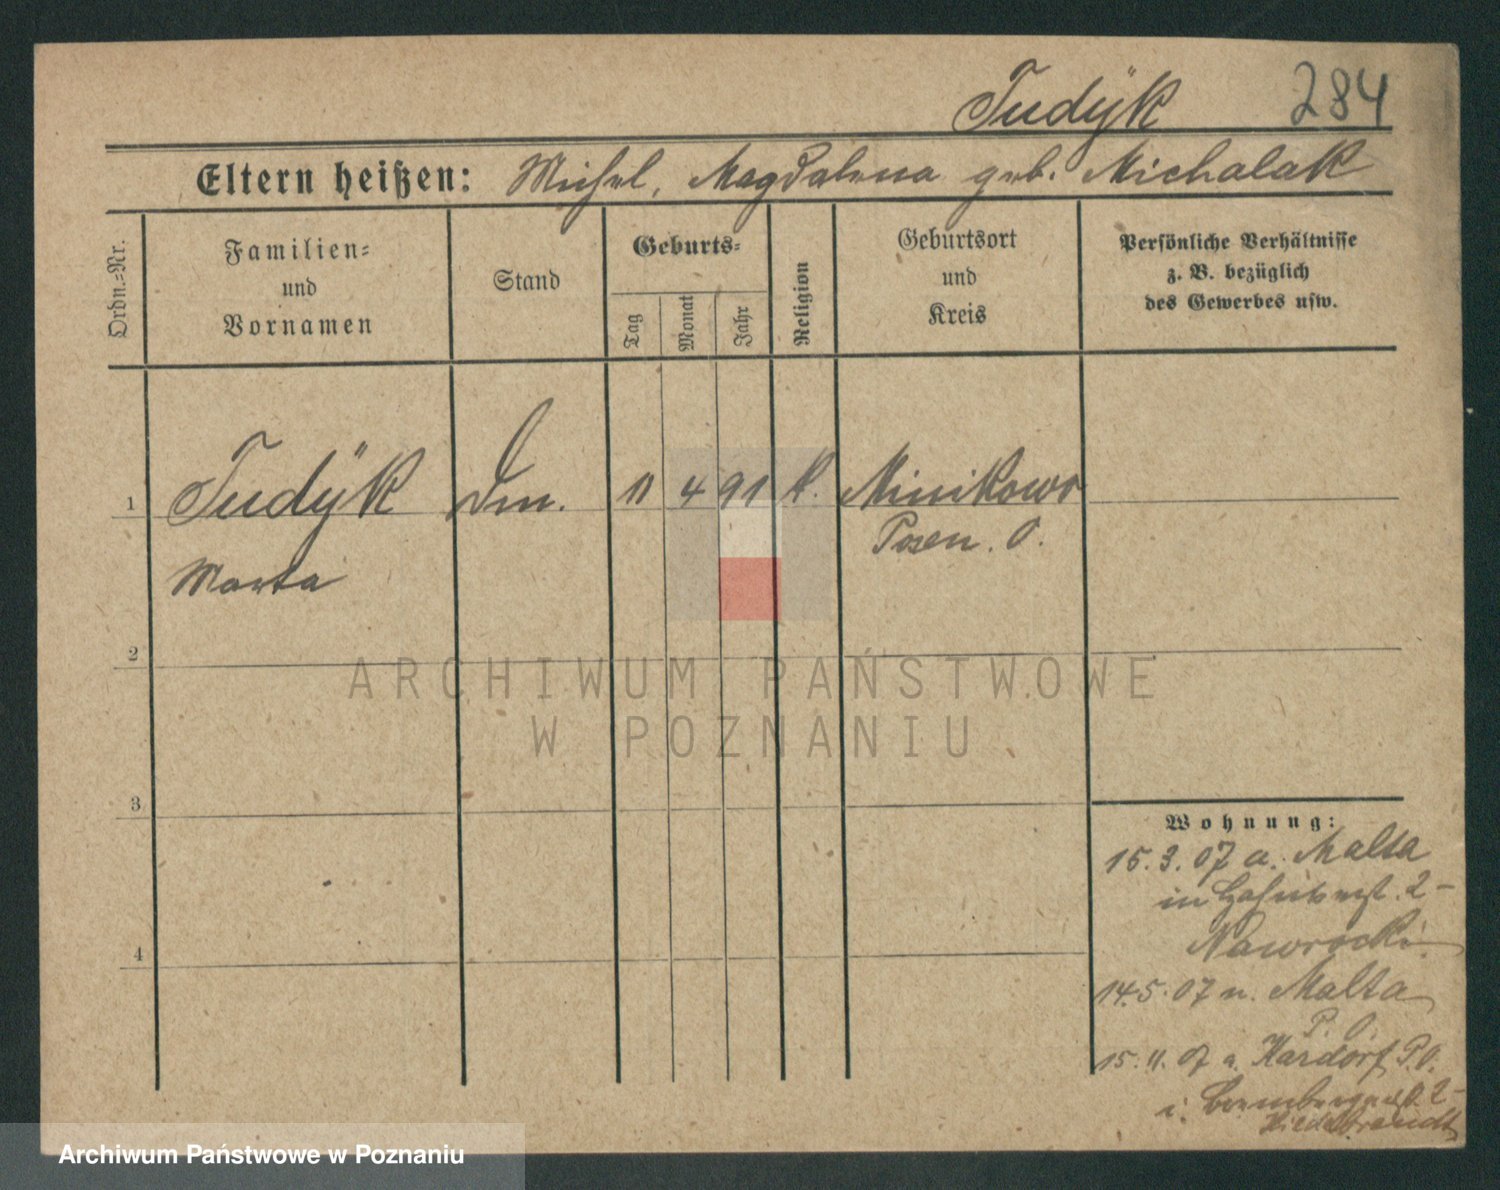 Tudÿk 284
Eltern heißen: Michel, Magdalena geb. Michalak
Ordn.=Nr.
Familien=
und
Vornamen
Stand
Geburts=
Tag
Monat
Jahr
Religion
Geburtsort
und
Kreis
Persönliche Verhältnisse
z. B. bezüglich
des Gewerbes usw.
1 Tudÿk 11 4 91 k. Minikowo
Posen. O.
Marta
2
3
4
Wohnung:
15.3.07 a. Malta
in 2-
Nawrocki
14.5.07 n. Malta
P. O.
15.11.07 a. Kardorf P.O.
i. 2-
Hildebrandt
ARCHIWUM PAŃSTWOWE
W POZNANIU
Archiwum Państwowe w Poznaniu